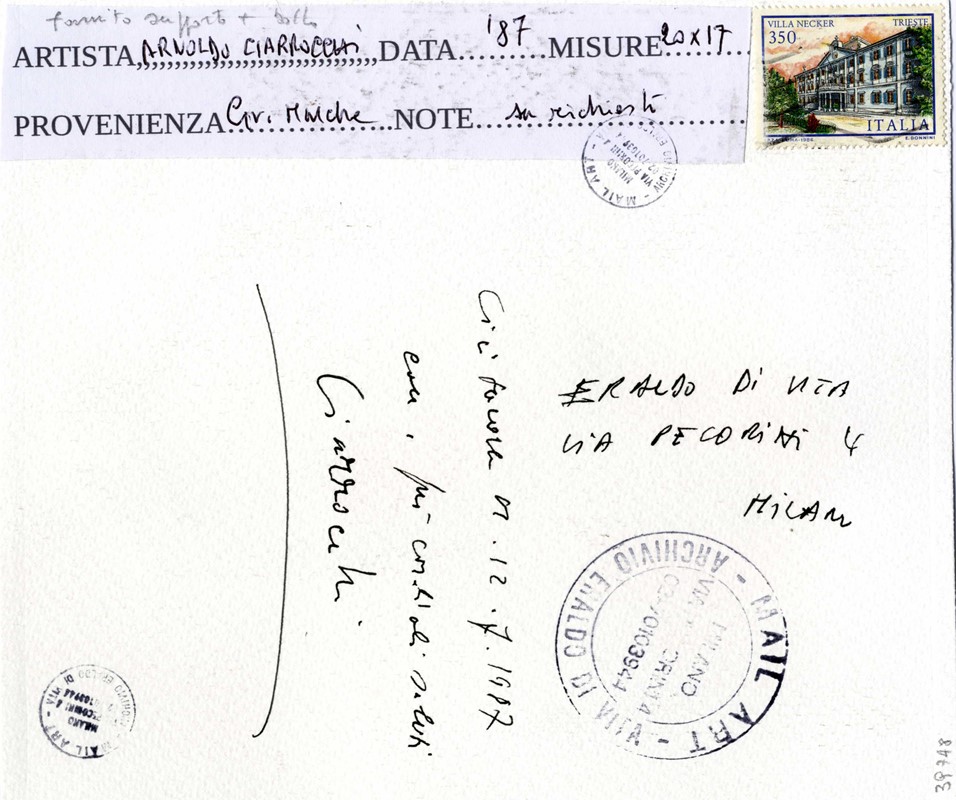 fornito supporto + bollo
ARTISTA,,,,,,,,,,,,,,,,,,,,,,,,,,,,,DATA.........MISURE.........
ARNOLDO CIARROCCHI '87 20 x 17
PROVENIENZA.................NOTE...........................
Civ. Marche su richiesta
VILLA NECKER TRIESTE
350
ITALIA
E. DONNINI
MAIL ART - ARCHIVIO ERALDO DI VITA
MILANO
VIA PECORINI 4
02/70103944
Civitanova M. 12.7.1987
con i più cordiali saluti
Ciarrocchi
ERALDO DI VITA
VIA PECORINI 4
MILANO
MAIL ART - ARCHIVIO ERALDO DI VITA
MILANO
VIA PECORINI 4
02/70103944
MAIL ART - ARCHIVIO ERALDO DI VITA
MILANO
PECORINI 4
39748